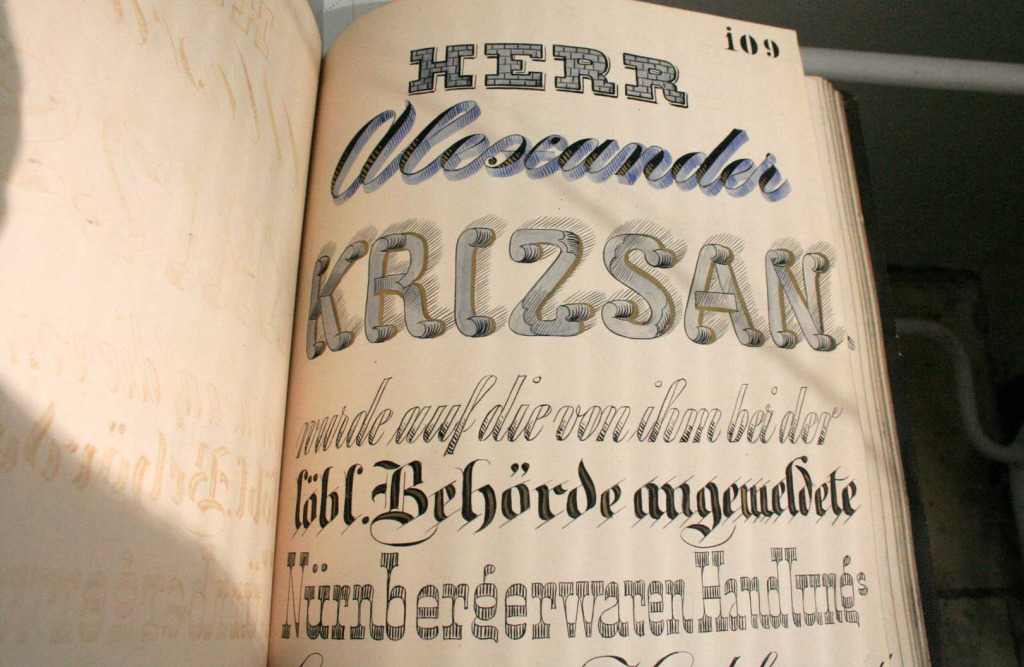 109
HERR
Alexander
KRIZSAN.
wurde auf die von ihm bei der
löbl. Behörde angemeldete
Nürnbergerwaren Handlungs